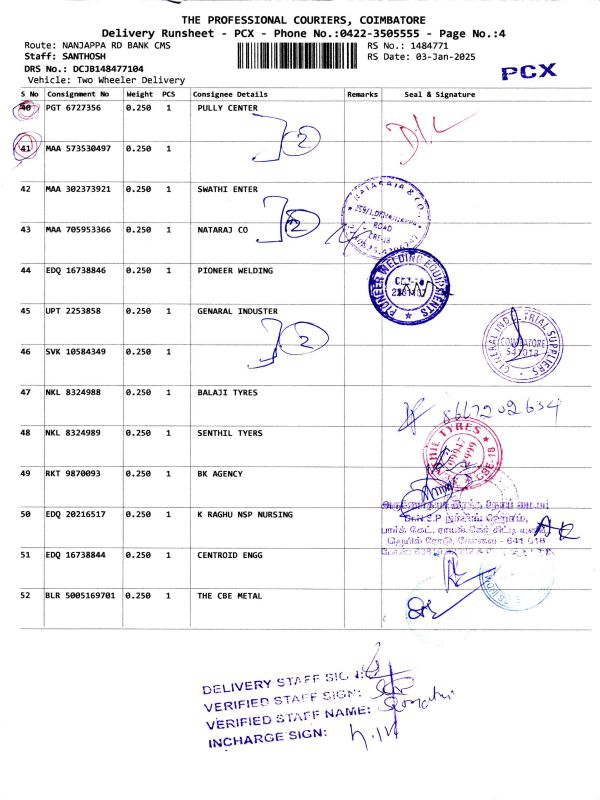 THE PROFESSIONAL COURIERS, COIMBATORE
Delivery Runsheet - PCX - Phone No.:0422-3505555 - Page No.:4
Route: NANJAPPA RD BANK CMS RS No.: 1484771
Staff: SANTHOSH RS Date: 03-Jan-2025
DRS No.: DCJB148477104
Vehicle: Two Wheeler Delivery
PCX
S No Consignment No Weight PCS Consignee Details Remarks Seal & Signature
40 PGT 6727356 0.250 1 PULLY CENTER
2
41 MAA 573530497 0.250 1
42 MAA 302373921 0.250 1 SWATHI ENTER
2
43 MAA 705953366 0.250 1 NATARAJ CO
ROAD
44 EDQ 16738846 0.250 1 PIONEER WELDING
PIONEER WELDING EQUIPMENTS
45 UPT 2253858 0.250 1 GENARAL INDUSTER
2
COIMBATORE
641018
46 SVK 10584349 0.250 1
47 NKL 8324988 0.250 1 BALAJI TYRES
8667202634
48 NKL 8324989 0.250 1 SENTHIL TYERS
TYRES
CBE-18
49 RKT 9870093 0.250 1 BK AGENCY
50 EDQ 20216517 0.250 1 K RAGHU NSP NURSING
641 018
51 EDQ 16738844 0.250 1 CENTROID ENGG
52 BLR 5005169701 0.250 1 THE CBE METAL
DELIVERY STAFF SIGN:
VERIFIED STAFF SIGN:
VERIFIED STAFF NAME:
INCHARGE SIGN: